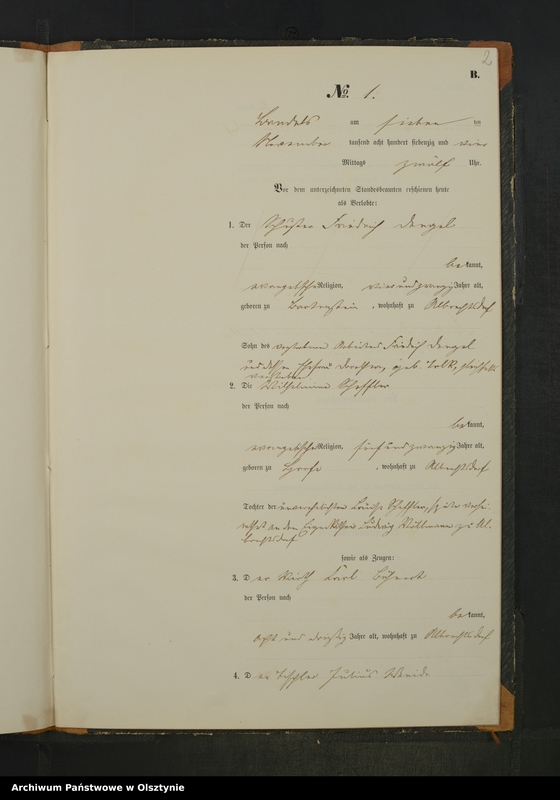 2
B.
No. 1.
am sieben ten
November tausend acht hundert siebenzig und vier
Mittags zwölf Uhr.
Vor dem unterzeichneten Standesbeamten erschienen heute
als Verlobte:
1. Der Schuster Friedrich Dengel
der Person nach
bekannt,
evangelischer Religion, vierundzwanzig Jahre alt,
geboren zu Bartenstein, wohnhaft zu Albrechtsdorf
Sohn des verstorbenen Arbeiters Friedrich Dengel
und dessen Ehefrau Dorothea, geb. Volk, gleichfalls
verstorben
2. Die Wilhelmine Scheffler
der Person nach
bekannt,
evangelischer Religion, fünfundzwanzig Jahre alt,
geboren zu, wohnhaft zu Albrechtsdorf
Tochter der unverehelichten Louise Scheffler,
an den Eigenkäthner Ludwig zu Al-
brechtsdorf
sowie als Zeugen:
3. Der Wirth Karl
der Person nach
bekannt,
acht und dreißig Jahre alt, wohnhaft zu Albrechtsdorf
4. Der Tischler Julius
Archiwum Państwowe w Olsztynie